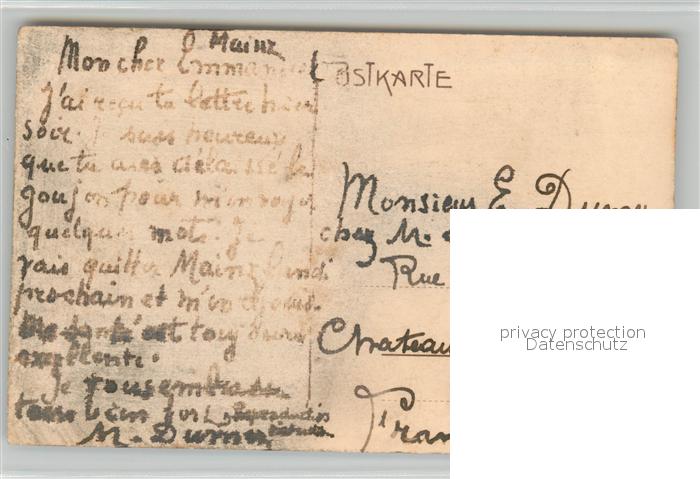 Mainz
Mon cher Emmanuel
J'ai reçu ta lettre hier
soir. Je suis heureux
que tu aies délaissé le
goujon pour m'envoyer
quelques mots. Je
vais quitter Mainz lundi
prochain et m'en
toujours
excellente.
Je vous embrasse
tous bien fort
M. Durner
POSTKARTE
Monsieur E.
chez M.
Rue
Chateau
Fran
privacy protection
Datenschutz